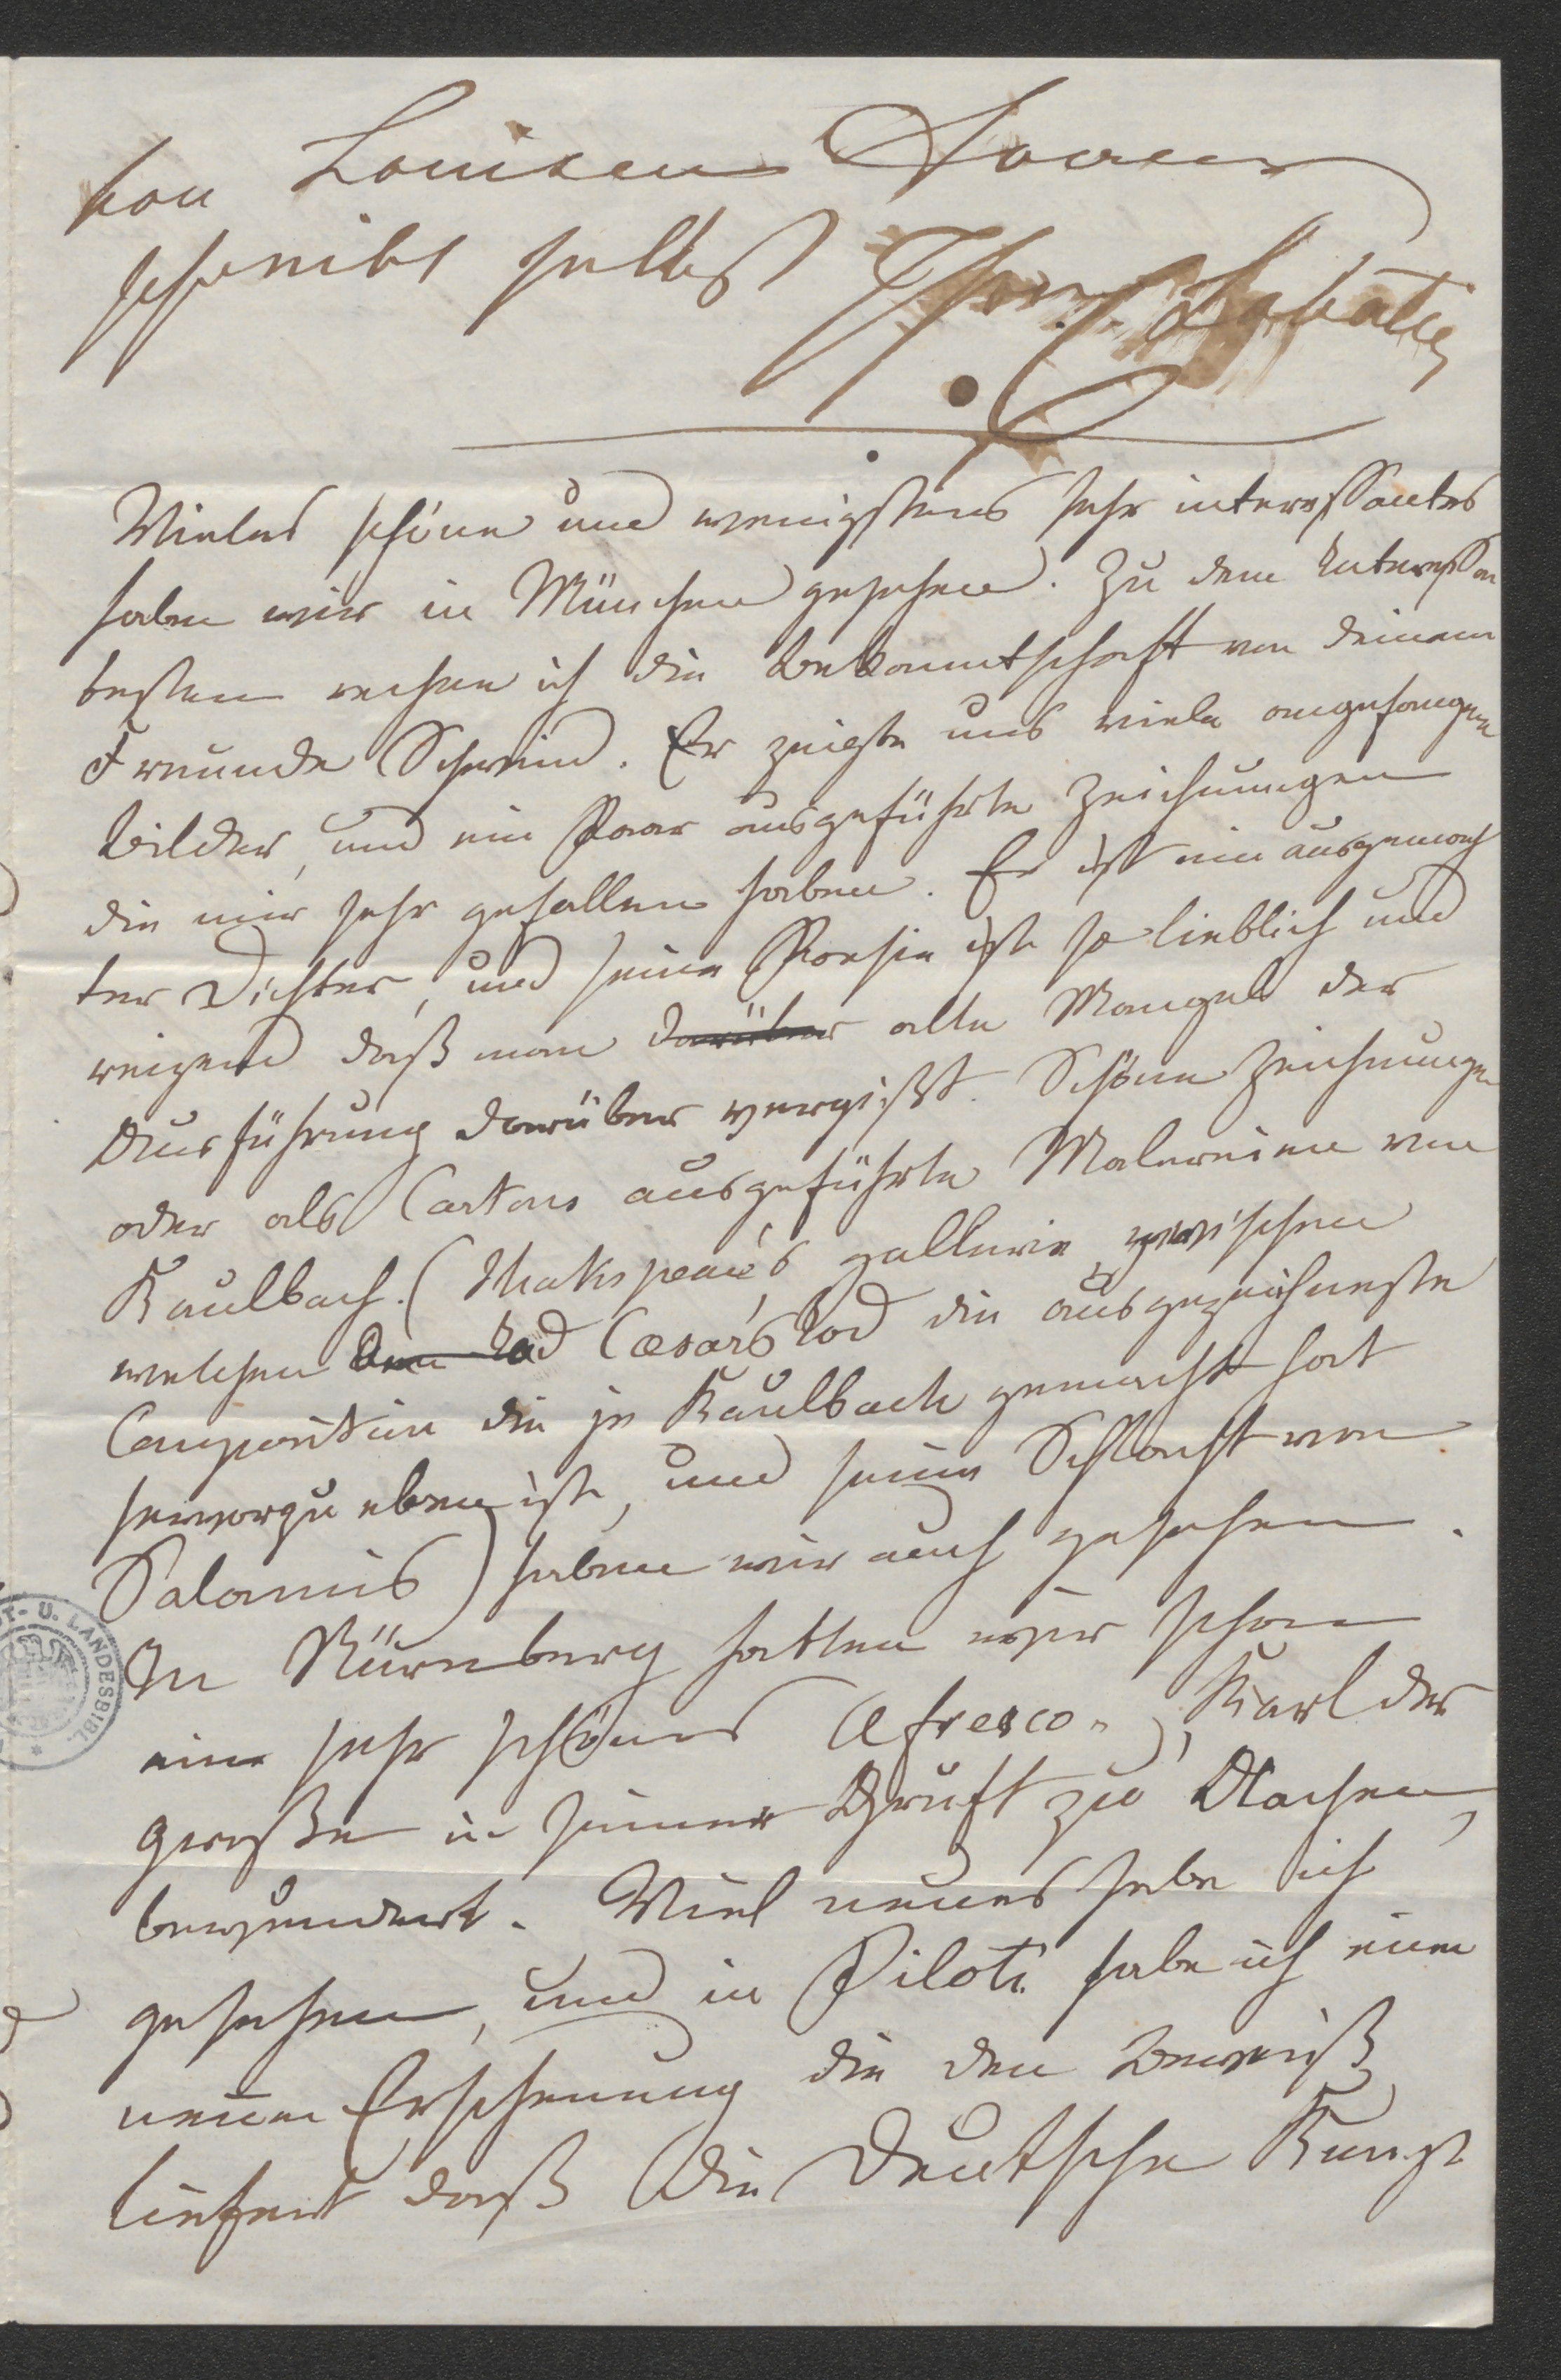 von Louisen
schreibt selbst Sabatier
Vieles schöne und wenigstens sehr interessantes
haben wir in München gesehen. Zu dem Interessan
testen rechne ich die Bekanntschaft von deinem
Freunde Schwind. Er zeigte uns viele angefangene
Bilder, und ein Paar ausgeführte Zeichnungen
die mir sehr gefallen haben. Er ist ein ausgemach
ter Dichter, und seine Poesie ist so lieblich und
reizend daß man darüber alle Mangel der
Ausführung darüber vergißt. Schöne Zeichnungen
oder als Cartons ausgeführte Malereien von
Kaulbach. (Shakspeare's gallerie, zwischen
welchen den Tod Cæsar's Tod die ausgezeichneste
Composition die je Kaulbach gemacht hat
hervorzu eben ist, und seine Schlacht von
Salamis) haben wir auch gesehen.
In Nürnberg hatten wir schon
eine sehr schönes Afresco, Karl der
große in seiner Gruft zu Aachen,
bewundert. Viel neues habe ich
gesehen, und in Piloti habe ich eine
neue Erscheinung die den Beweiß
liefert daß die Deutsche Kunst
ST- U. LANDESBIBL.